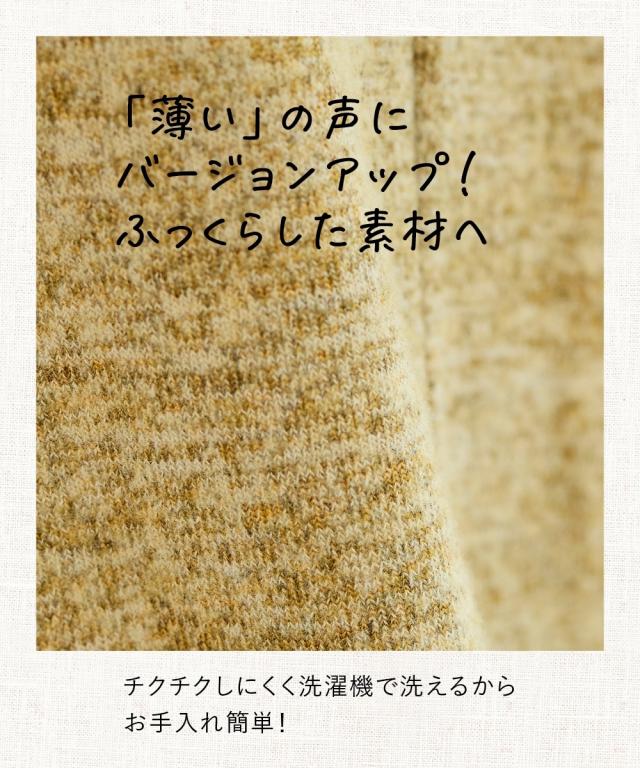 「薄い」の声に
バージョンアップ！
ふっくらした素材へ
チクチクしにくく洗濯機で洗えるから
お手入れ簡単！